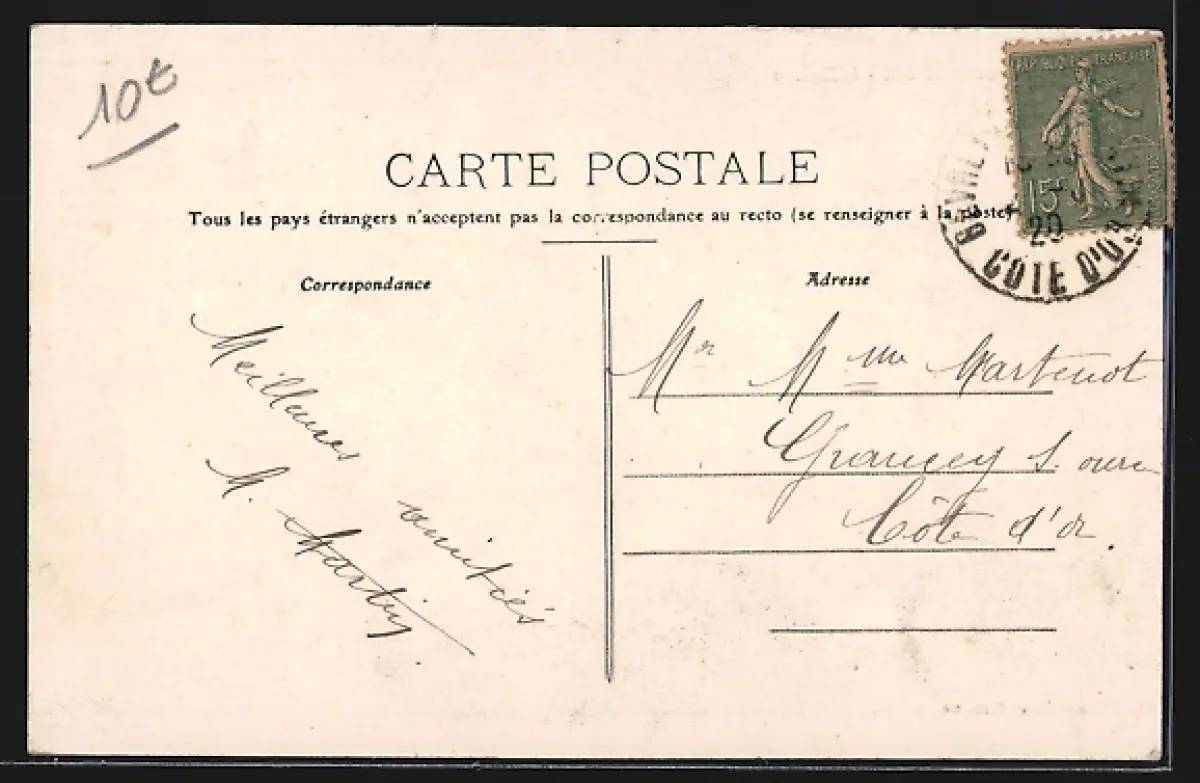 10€
REPUBLIQUE FRANCAISE
15c
20
COTE D'OR
CARTE POSTALE
Tous les pays étrangers n'acceptent pas la correspondance au recto (se renseigner à la poste)
Correspondance
Meilleures amitiés
M. Martin
Adresse
Mr Mme Martenot
Grancey s. ource
Côte d'or.